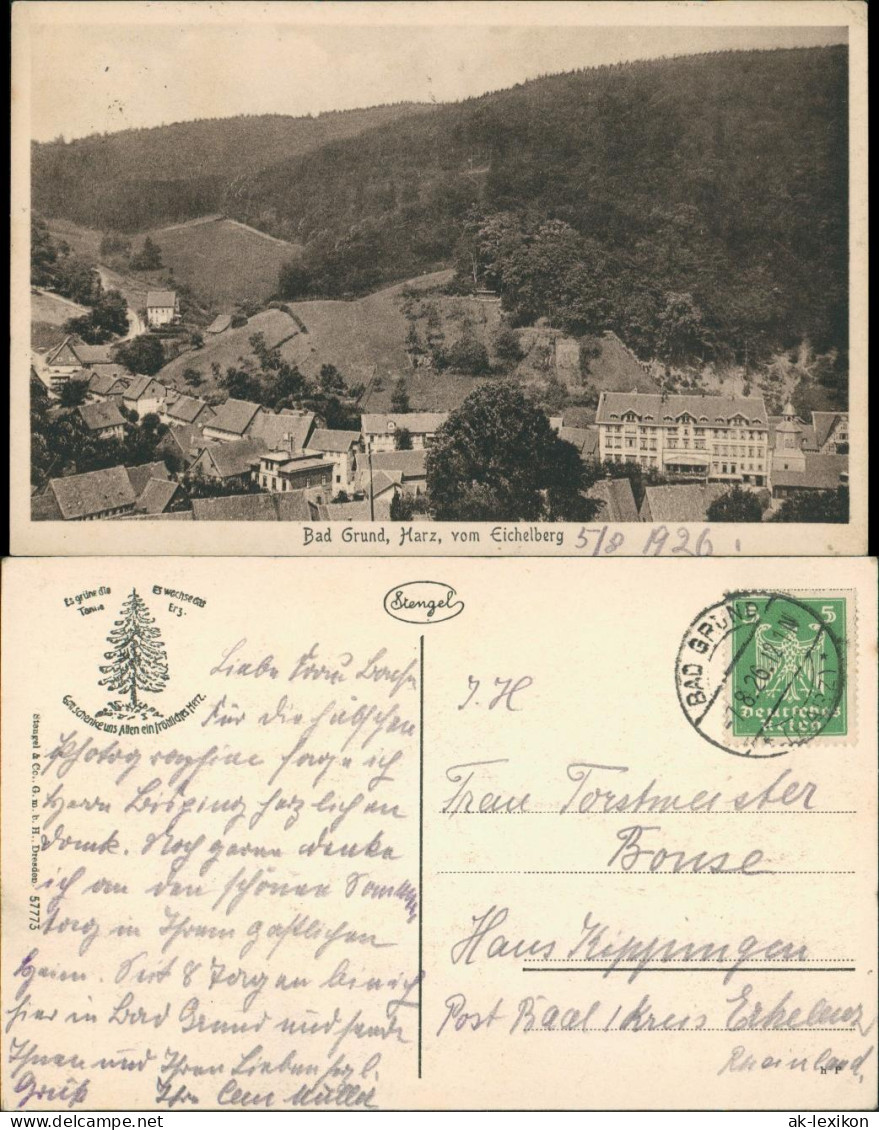 Bad Grund, Harz, vom Eichelberg 5/8 1926.
Es grüne die Tanne
es wachse das Erz.
Gott schenke uns Allen ein fröhliches Herz.
Stengel
Stengel & Co., G. m. b. H., Dresden 57773
Liebe Frau
Für die hübschen
Photographine sage ich
Herrn Bisping herzlichen
Dank. Noch gerne denke
ich an den schönen Sonn
tag in Ihrem gastlichen
Heim. Seit 8 Tagen bin ich
hier in Bad Grund und sende
Ihnen und Ihren Lieben hzl.
Gruß Ihr Müller
BAD GRUND
8.26.12-1N
5
Deutsches
Reich
I. H
Frau Forstmeister
Bouse
Haus Kippingen
Post Baal / Kreis Erkelenz
Rheinland.
ak-lexikon
www.delcampe.net